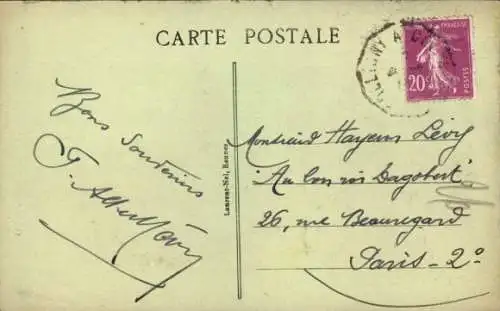 CARTE POSTALE
Bons Souvenirs
Laurent-Nel, Rennes
FRANÇAISE
20c
POSTES
Monsieur Hayem Lévy
"Au bon roi Dagobert"
26, rue Beauregard
Paris - 2e